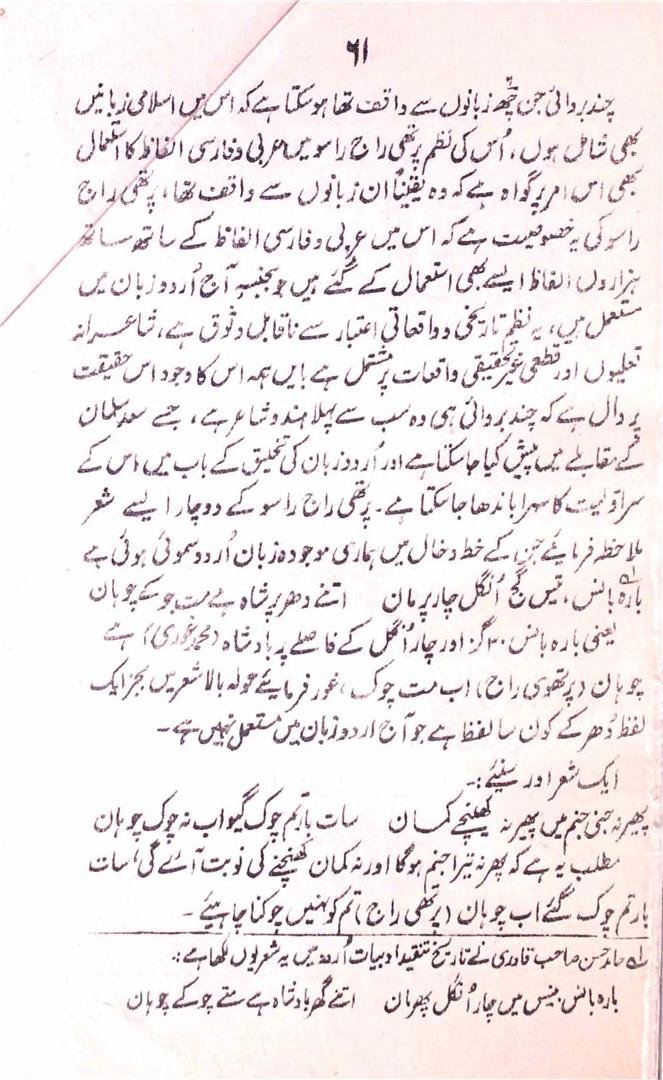 ۶۱
چندبردائی جن چھ زبانوں سے واقف تھا ہوسکتا ہے کہ اس میں اسلامی زبانیں
بھی شامل ہوں، اُس کی نظم پرتھی راج راسو میں عربی و فارسی الفاظ کا استعمال
بھی اس امر پر گواہ ہے کہ وہ یقیناً ان زبانوں سے واقف تھا، پرتھی راج
راسو کی یہ خصوصیت ہے کہ اس میں عربی و فارسی الفاظ کے ساتھ ساتھ
ہزاروں الفاظ ایسے بھی استعمال کئے گئے ہیں جو بجنسہٖ آج اُردو زبان میں
مستعمل ہیں، یہ نظم تاریخی و واقعاتی اعتبار سے ناقابل وثوق ہے، شاعرانہ
تعلیوں اور قطعی غیر تحقیقی واقعات پر مشتمل ہے بایں ہمہ اس کا وجود اس حقیقت
پر دال ہے کہ چندبردائی ہی وہ سب سے پہلا ہندو شاعر ہے، جسے سعد سلمان
کے مقابلے میں پیش کیا جاسکتا ہے اور اُردو زبان کی تخلیق کے باب میں اس کے
سر اوّلیت کا سہرا باندھا جاسکتا ہے۔ پرتھی راج راسو کے دوچار ایسے شعر
ملاحظہ فرمائیے جن کے خط و خال میں ہماری موجودہ زبان اُردو سموئی ہوئی ہے
بارہ بانس، تیس گج اُنگل چار پرمان    اتنے دھر پر شاہ ہے مت چوکے چوہان
یعنی بارہ بانس ۳۰ گز اور چار اُنگل کے فاصلے پر بادشاہ (محمد غوری) ہے
چوہان (پرتھوی راج)، اب مت چوک، غور فرمائیے محولہ بالا شعر میں بجز ایک
لفظ دُھر کے کون سا لفظ ہے جو آج اردو زبان میں مستعمل نہیں ہے۔
ایک شعر اور سنیئے:۔
پھر نہ جنی جنم میں پھر نہ کھینچے کمان    سات بار تم چوک گیو اب نہ چوک چوہان
مطلب یہ ہے کہ پھر نہ تیرا جنم ہوگا اور نہ کمان کھنچنے کی نوبت آئے گی، سات
بار تم چوک گئے اب چوہان (پرتھی راج) تم کو نہیں چوکنا چاہیئے۔
لے حامد حسن صاحب قادری نے تاریخ تنقید ادبیات اُردو میں یہ شعر یوں لکھا ہے:۔
بارہ بانس بتیس میں چار اُنگل پھرمان    اتنے گھر بادشاہ ہے متے چوکے چوہان